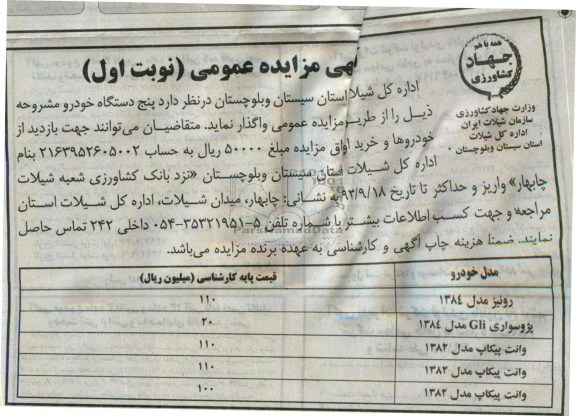 همه با هم
جهاد
کشاورزی
وزارت جهاد کشاورزی
سازمان شیلات ایران
اداره کل شیلات
استان سیستان وبلوچستان
گهی مزایده عمومی (نوبت اول)
اداره کل شیلات استان سیستان وبلوچستان درنظر دارد پنج دستگاه خودرو مشروحه
ذیل را از طریق مزایده عمومی واگذار نماید. متقاضیان می‌توانند جهت بازدید از
خودروها و خرید اوراق مزایده مبلغ ۵۰۰۰۰ ریال به حساب ۲۱۶۳۹۵۲۶۰۵۰۰۲ بنام
اداره کل شیلات استان سیستان وبلوچستان «نزد بانک کشاورزی شعبه شیلات
چابهار» واریز و حداکثر تا تاریخ ۹۳/۹/۱۸ به نشانی: چابهار، میدان شیلات، اداره کل شیلات استان
مراجعه و جهت کسب اطلاعات بیشتر با شماره تلفن ۵-۳۵۳۲۱۹۵۱-۰۵۴ داخلی ۲۴۲ تماس حاصل
نمایند. ضمنا هزینه چاپ آگهی و کارشناسی به عهده برنده مزایده می‌باشد.
مدل خودرو قیمت پایه کارشناسی (میلیون ریال)
رونیز مدل ۱۳۸۴ ۱۱۰
پژوسواری Gli مدل ۱۳۸۴ ۲۰
وانت پیکاپ مدل ۱۳۸۲ ۱۱۰
وانت پیکاپ مدل ۱۳۸۲ ۱۱۰
وانت پیکاپ مدل ۱۳۸۲ ۱۰۰
ParsNamadData